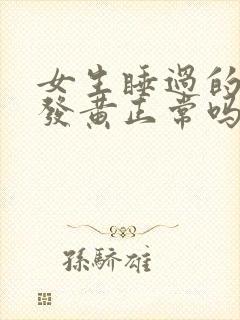 女生睡過的
發黃正常嗎
孫驕雄